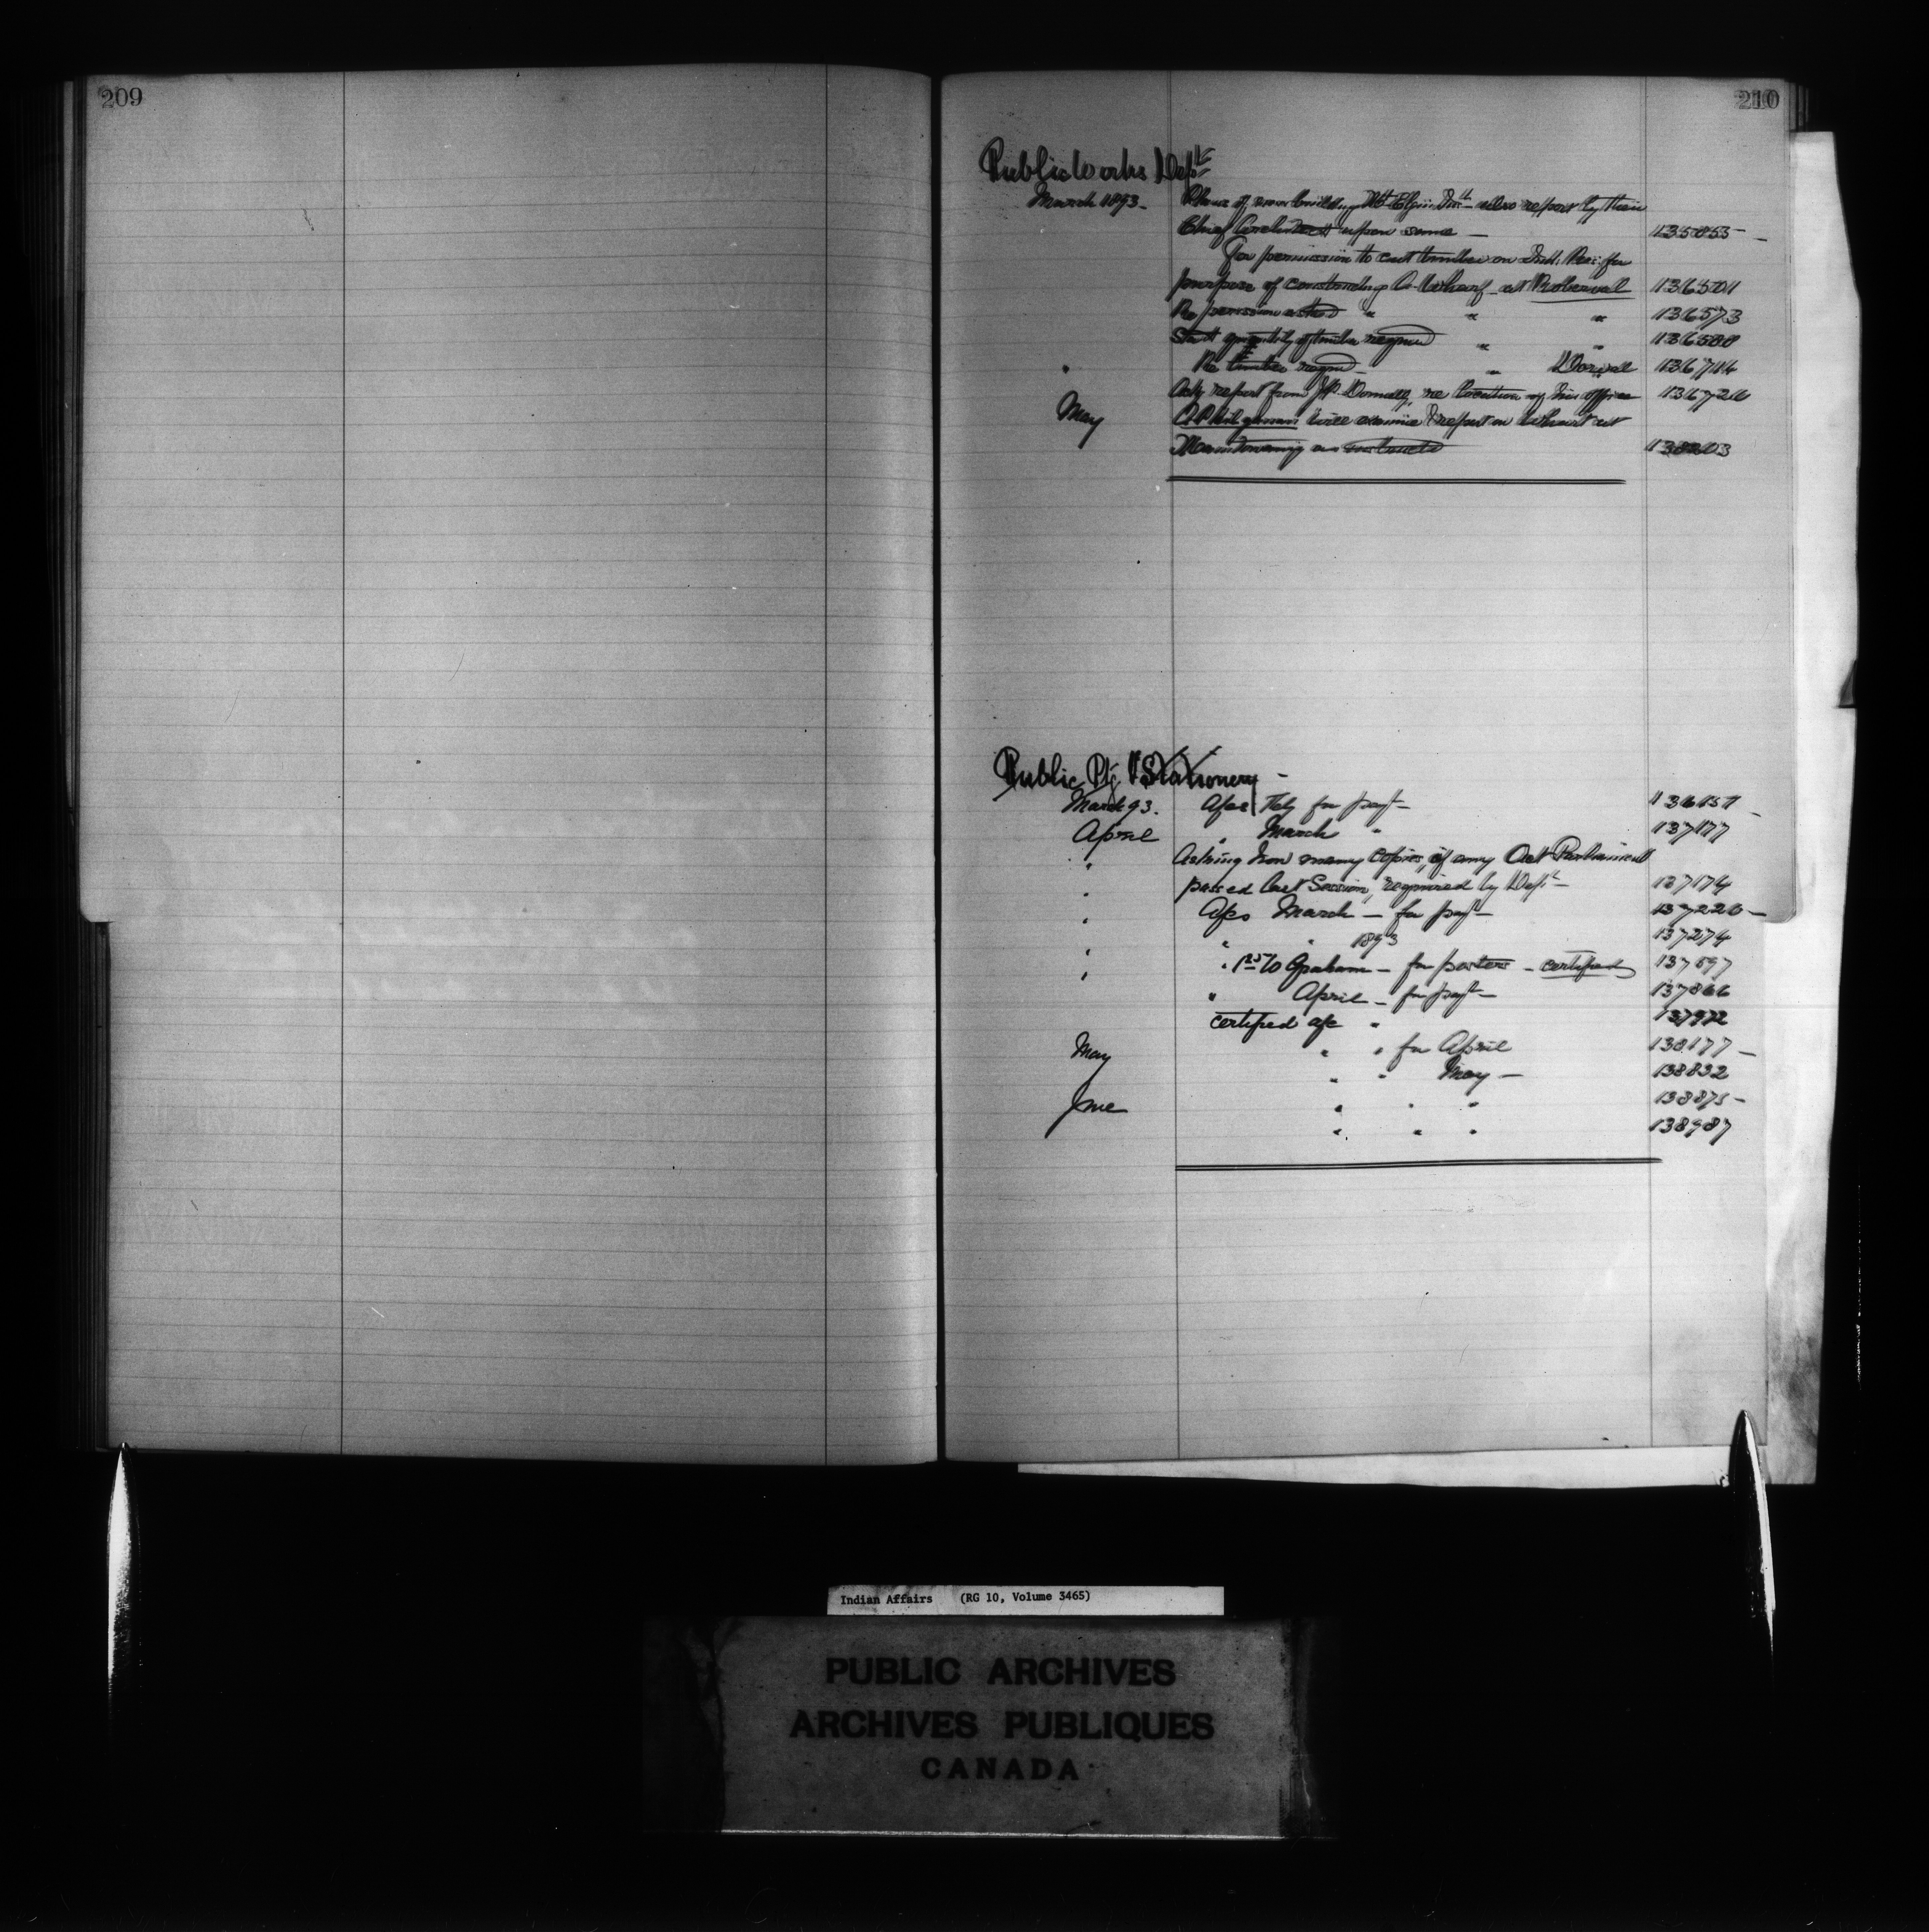 209
210
Public Works Dept
March 1893. Plans of new building Mt Elgin Inst also report by their
Chief Architect upon same — 135855 —
For permission to cut timber on Ind. Res: for
purpose of constructing a Wharf at Roberval 136501
Re permission asked " " " 136573
Stat quantity of timber required " " 136588
" Re timber reqd — " 136714
Asks report from Mr Donnelly, re location of his office 136726
May will examine & report on Wharf at
Manitowaning as instructed 138203
Public Ptg & Stationery —
March 93. A/cs Feby for payt — 136151 —
April " March " 137177
" Asking how many copies, if any Act Parliament
" passed last Session, required by Dept — 137174
" A/cs March — for payt — 137226 —
" " " 1893 137274
" " to Graham — for posters — certified 137597
" " April — for payt — 137866
certified a/c " 137972
May " " for April 138177 —
" " May — 138832
June " " " 138875 —
" " " 138987
Indian Affairs (RG 10, Volume 3465)
PUBLIC ARCHIVES
ARCHIVES PUBLIQUES
CANADA